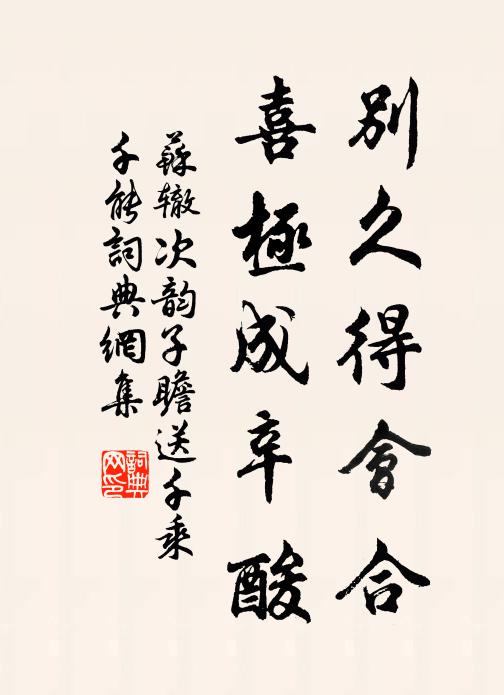 別久得會合
喜極成辛酸
蘇辙次韵子瞻送千乘
千能詞典網集
詞典
网印